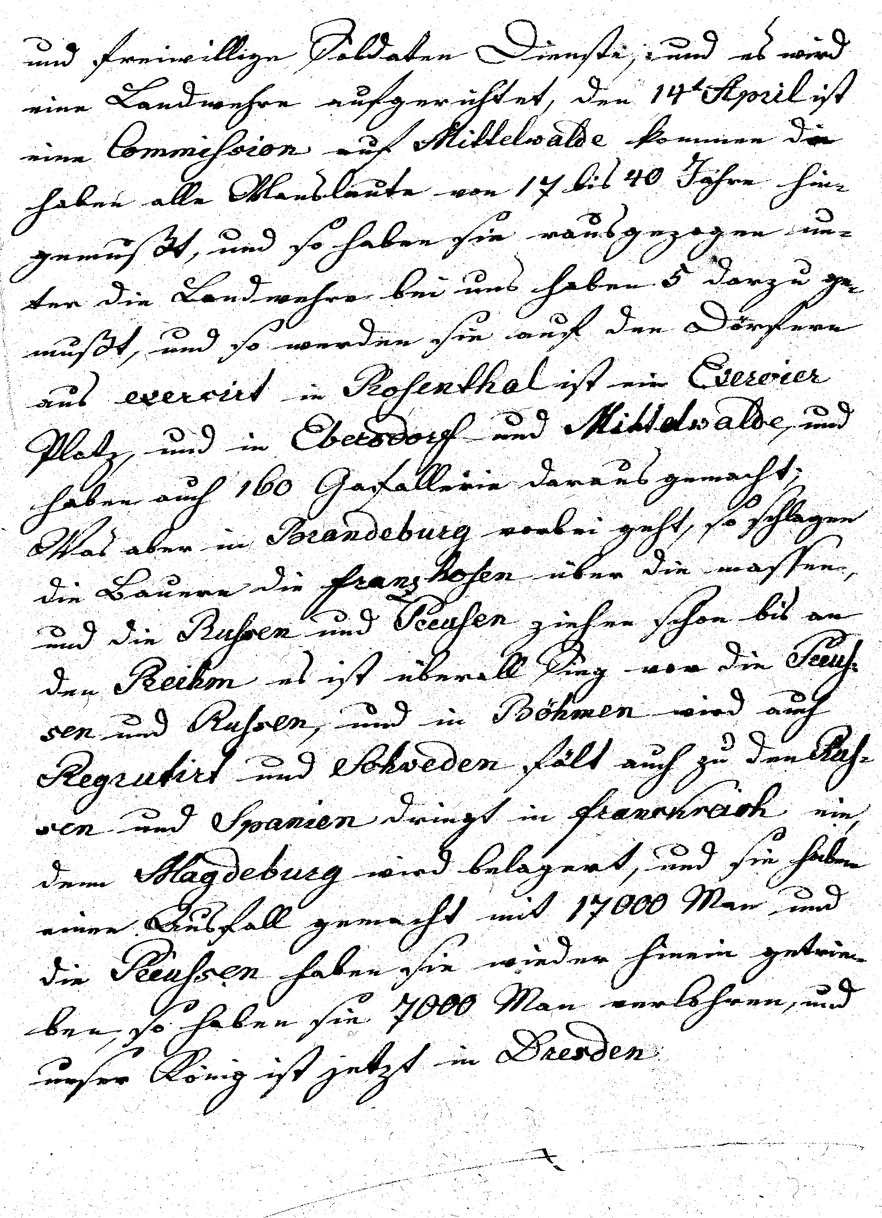 und freiwillige Soldaten Dienste, und es wird
eine Landwehre aufgerichtet, den 14t April ist
eine Commission auf Mittelwalde kommen die
haben alle Mansleute von 17 bis 40 Jahre hin-
gemußt, und so haben sie rausgezogen un-
ter die Landwehre bei uns haben 5 darzu ge-
mußt, und so werden sie auf den Dörfern
aus exercirt in Rosenthal ist ein Exercier
Platz, und in Ebersdorf und Mittelwalde, und
haben auch 160 Gafallerie daraus gemacht;
Was aber in Brandeburg vorbei geht, so schlagen
die Bauern die franzhosen über die massen,
und die Russen und Preusen ziehen schon bis an
den Reihm es ist überall Sieg vor die Preus-
sen und Russen, und in Böhmen wird auch
Regrutirt und Schweden fält auch zu den Rus-
sen und Spanien dringt in franckreich ein,
denn Magdeburg wird belagert, und sie haben
einen Ausfall gemacht mit 17000 Man und
die Preussen haben sie wieder hinein getrie-
ben, so haben sie 7000 Man verlohren, und
unser König ist jetzt in Dresden